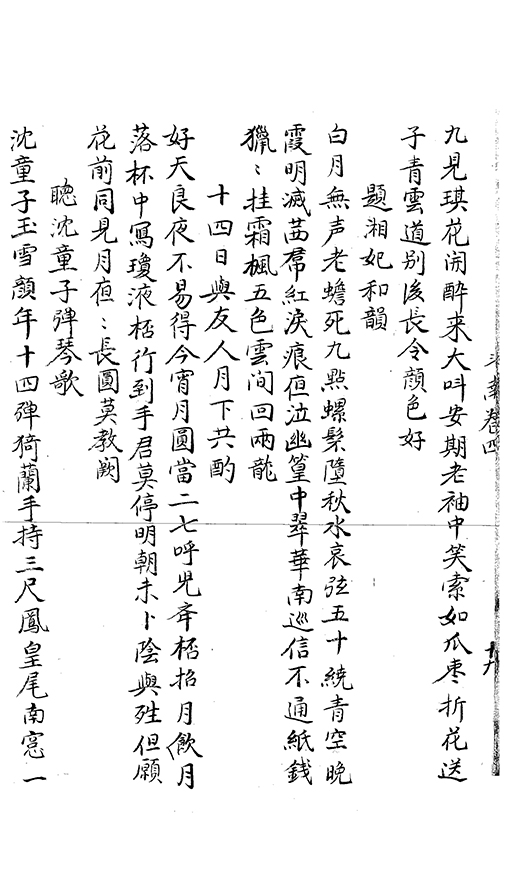 九見琪花開醉来大叫安期老袖中笑索如瓜枣折花送
子青雲道别後長令顔色好
題湘妃和韻
白月無声老蟾死九點螺髻墮秋水哀弦五十繞青空晚
霞明滅茜帬紅淚痕夜泣幽篁中翠華南巡信不通紙錢
獵〻挂霜楓五色雲间回兩龍
十四日與友人月下共酌
好天良夜不易得今宵月圓當二七呼児弄桮招月飲月
落杯中寫瓊液桮行到手君莫停明朝未卜陰與殅但願
花前同見月夜〻長圓莫教闕
聴沈童子弹琴歌
沈童子玉雪顔年十四弹猗蘭手持三尺鳳皇尾南窓一
卷四
十九